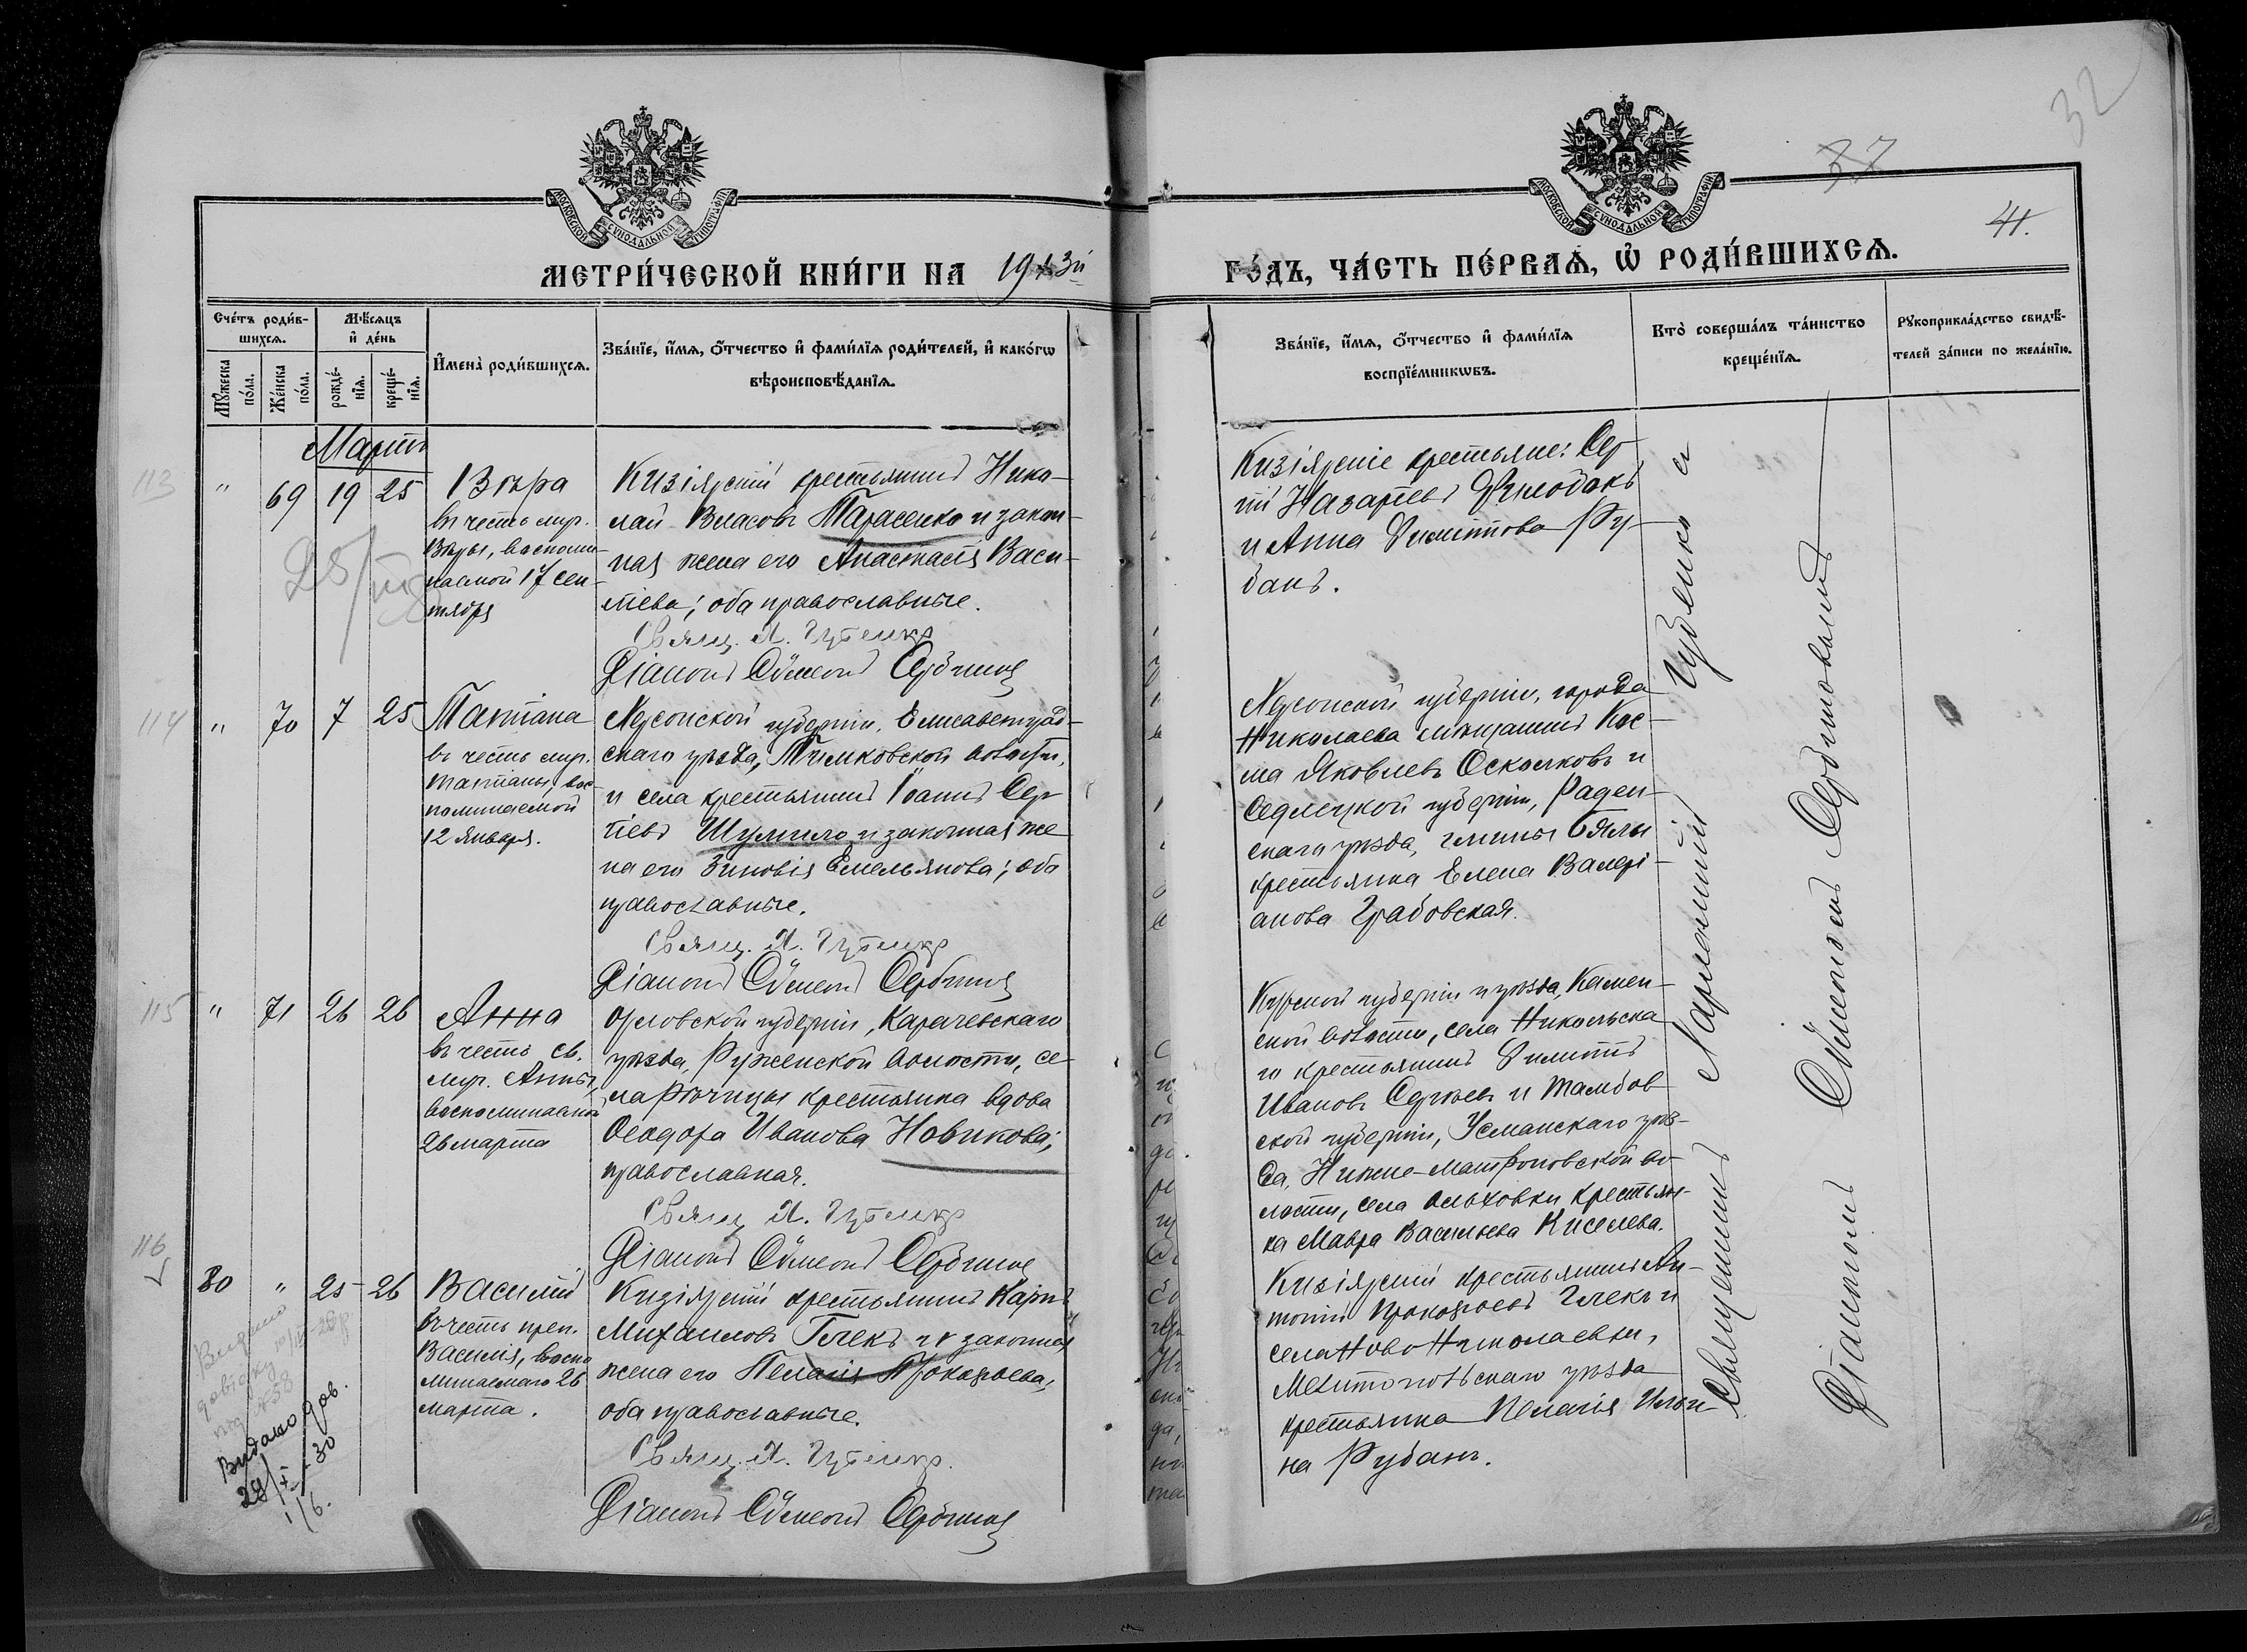 32
37
41.
МОСКОВСКОЙ СѴНОДАЛЬНОЙ ТИПОГРАФІИ
МОСКОВСКОЙ СѴНОДАЛЬНОЙ ТИПОГРАФІИ
МЕТРИ́ЧЕСКОЙ КНИ́ГИ НА 1913й
ГО́ДЪ, ЧА́СТЬ ПЕ́РВАѦ, Ѡ РОДИ́ВШИХСѦ.
Сче́тъ роди́в-
шихсѧ.
Мꙋжеска по́ла.
Же́нска по́ла.
Мѣ́сѧцъ
и҆ де́нь
рожде́-
нїѧ.
креще́-
нїѧ.
И҆мена̀ роди́вшихсѧ.
Зва́нїе, и҆́мѧ, ѻ҆́тчество и҆ фами́лїѧ роди́телей, и҆ како́гѡ
вѣроисповѣ́данїѧ.
Зва́нїе, и҆́мѧ, ѻ҆́тчество и҆ фами́лїѧ
воспрїе́мникѡвъ.
Кто̀ соверша́лъ та́инство
креще́нїѧ.
Рꙋкоприкла́дство свидѣ́-
телей за́писи по жела́нїю.
Мартъ
113
" 69 19 25
Вѣра
въ честь муч.
Вѣры, воспоми-
наемой 17 сен-
тября
Кизіярскій крестьянинъ Нико-
лай Власовъ Тарасенко и закон-
ная жена его Анастасія Васи-
льева; оба православные.
Свящ. Л. Чубенко
Діаконъ Сѵмеонъ Сербинов
Кизіярскіе крестьяне: Сер-
гій Назаріевъ
и Анна Димитріева Ру-
банъ.
114
" 70 7 25
Татіана
въ честь муч.
Татіаны, вос-
поминаемой
12 января.
Херсонской губерніи, Елисаветград-
скаго уѣзда, Тимковской волости,
и села крестьянинъ Іоаннъ Сер-
гіевъ Шумило и законная же-
на его Зиновія Емельянова; оба
православные.
Свящ. Л. Чубенко
Діаконъ Сѵмеонъ Сербинов
Херсонской губерніи, города
Николаева мѣщанинъ Кос-
ма Яковлевъ Осколковъ и
Седлецкой губерніи, Радин-
скаго уѣзда, гмины Бялы
крестьянка Елена Валері-
анова Грабовская.
115
" 71 26 26
Анна
въ честь св.
муч. Анны,
воспоминаемой
26 марта
Орловской губерніи, Карачевскаго
уѣзда, Руженской волости, се-
ла Рѣчицы крестьянка вдова
Ѳеодора Иванова Новикова;
православная.
Свящ. Л. Чубенко
Діаконъ Сѵмеонъ Сербинов
Курской губерніи и уѣзда, Камен-
ской волости, села Никольска-
го крестьянинъ Димитрій
Ивановъ Сергѣевъ и Тамбов-
ской губерніи, Усманскаго уѣз-
да, Нижне-Матрёновской во-
лости, села Ольховки крестьян-
ка Мавра Васильева Киселева.
116
80 " 25 26
Василій
въ честь преп.
Василія, воспо-
минаемаго 26
марта.
Кизіярскій крестьянинъ Карпъ
Михаиловъ Глекъ и законная
жена его Пелагія Прокофьева;
оба православные.
Свящ. Л. Чубенко.
Діаконъ Сѵмеонъ Сербинов
Кизіярскій крестьянинъ Ан-
тоній Прокофьевъ Глекъ и
села Ново Николаевки,
Мелитопольскаго уѣзда
крестьянка Пелагія Ильи-
на Рубанъ.
Видано дов.
28/X-30
116.
Священникъ Чубенко и
Діаконъ Сѵмеонъ Сербиновъ